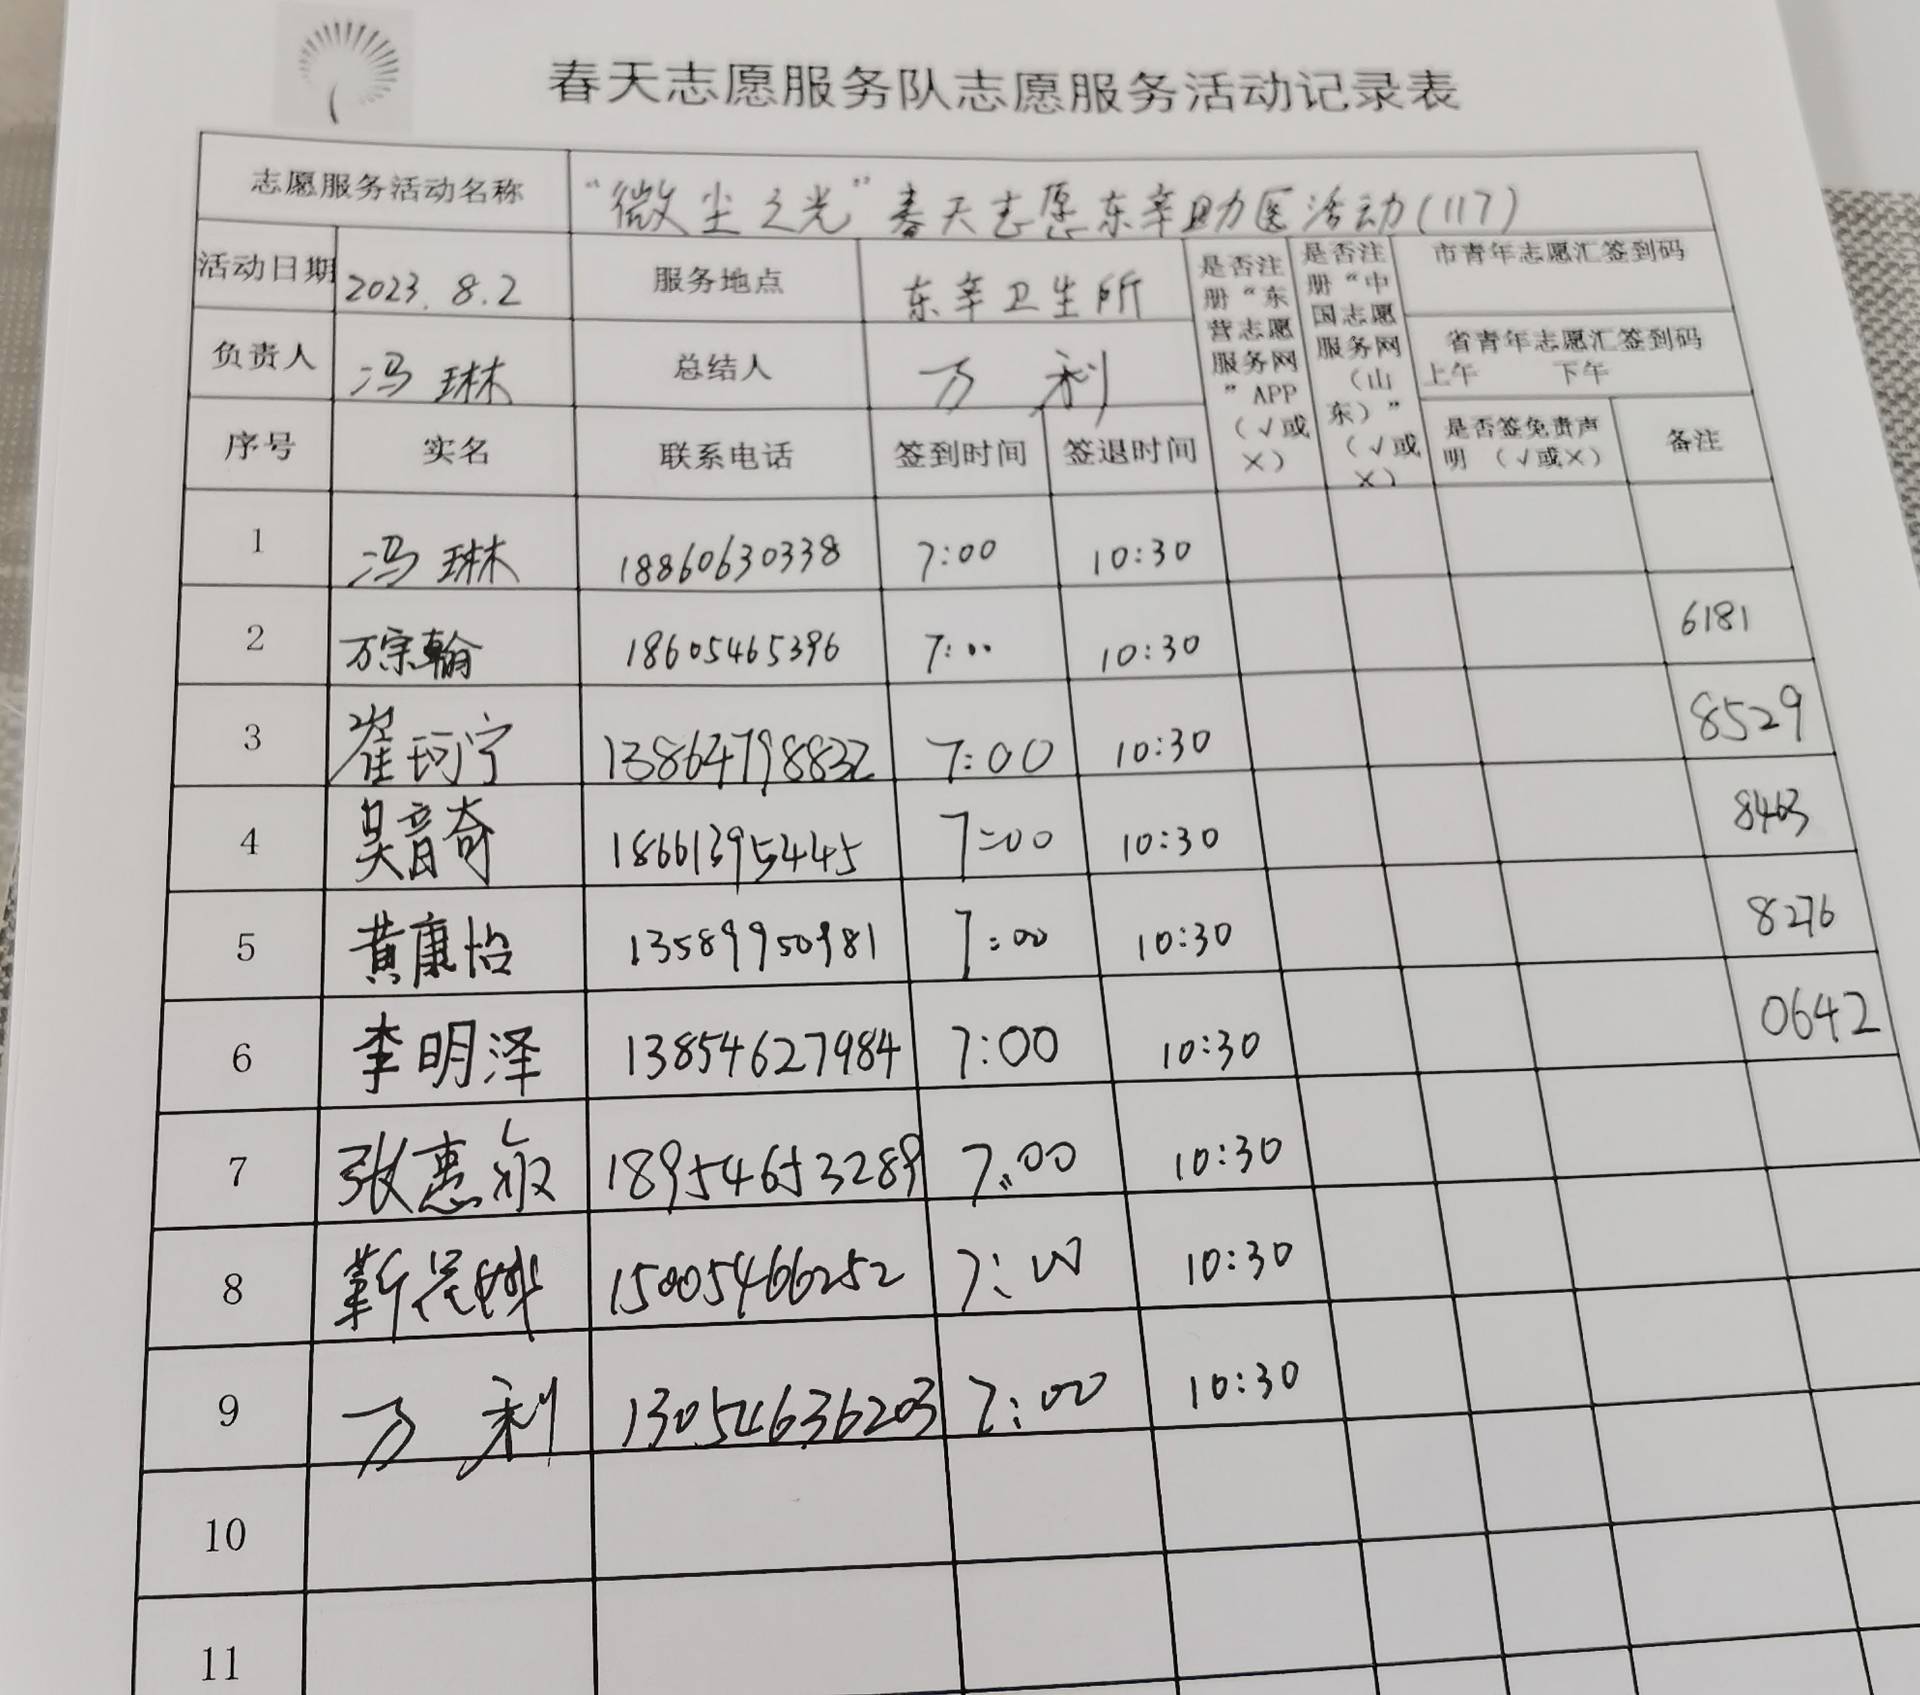 春天志愿服务队志愿服务活动记录表
志愿服务活动名称 “微尘之光”春天志愿东辛助医活动(117)
活动日期 2023.8.2 服务地点 东辛卫生所 是否注册“东营志愿服务网”APP(√或×) 是否注册“中国志愿服务网(山东)”(√或×) 市青年志愿汇签到码
负责人 冯琳 总结人 万利 省青年志愿汇签到码
上午 下午
序号 实名 联系电话 签到时间 签退时间 是否签免责声明 (√或×) 备注
1 冯琳 18860630338 7:00 10:30
2 万宗翰 18605465396 7:00 10:30 6181
3 崔珂宁 13864798832 7:00 10:30 8529
4 吴音奇 18661395445 7:00 10:30 8463
5 黄康怡 13589950981 7:00 10:30 8276
6 李明泽 13854627984 7:00 10:30 0642
7 张惠敏 18954653289 7:00 10:30
8 靳 15005466252 7:00 10:30
9 万利 13054636203 7:00 10:30
10
11